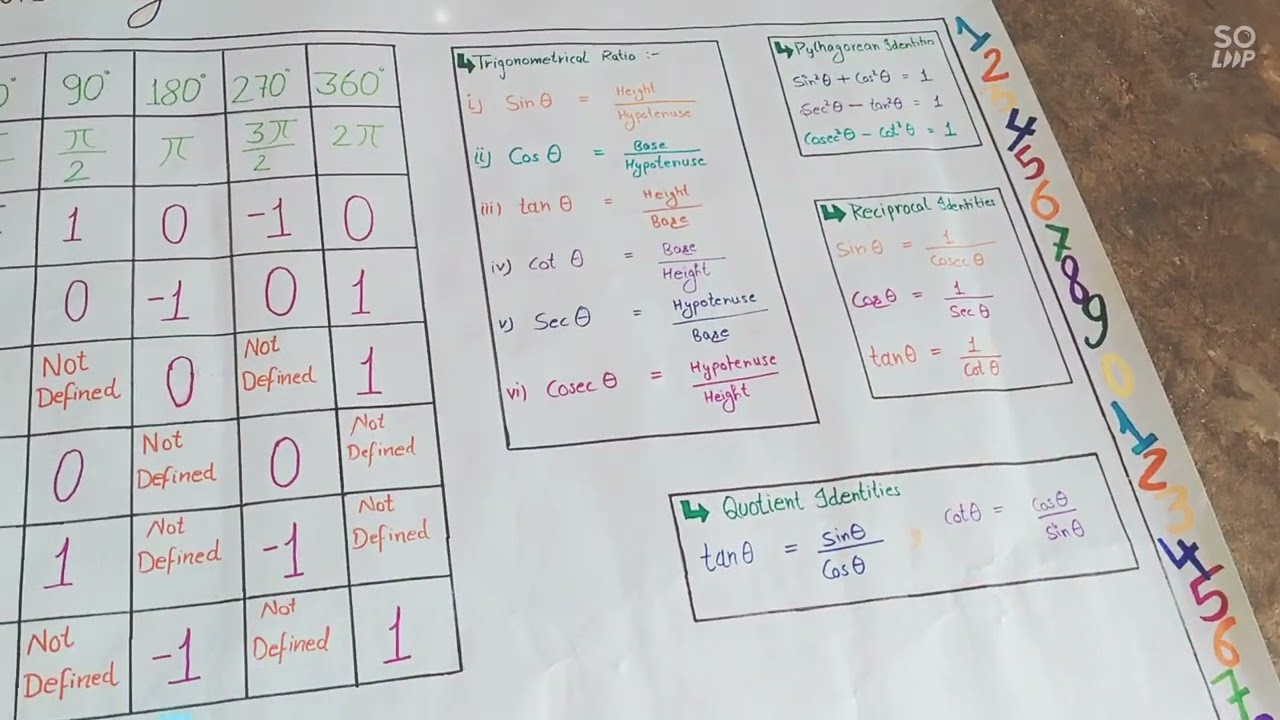 SO
LOOP
90° 180° 270° 360°
π/2 π 3π/2 2π
1 0 -1 0
0 -1 0 1
Not Defined 0 Not Defined 1
0 Not Defined 0 Not Defined
1 Not Defined -1 Not Defined
Not Defined -1 Not Defined 1
Trigonometrical Ratio :-
i) Sin θ = Height/Hypotenuse
ii) Cos θ = Base/Hypotenuse
iii) tan θ = Height/Base
iv) Cot θ = Base/Height
v) Sec θ = Hypotenuse/Base
vi) Cosec θ = Hypotenuse/Height
Pythagorean Identitie
Sin²θ + Cos²θ = 1
Sec²θ - tan²θ = 1
Cosec²θ - Cot²θ = 1
Reciprocal Identities
Sinθ = 1/Cosecθ
Cosθ = 1/Secθ
tanθ = 1/Cotθ
Quotient Identities
tanθ = Sinθ/Cosθ , Cotθ = Cosθ/Sinθ
1
2
3
4
5
6
7
8
9
0
1
2
3
4
5
6
7